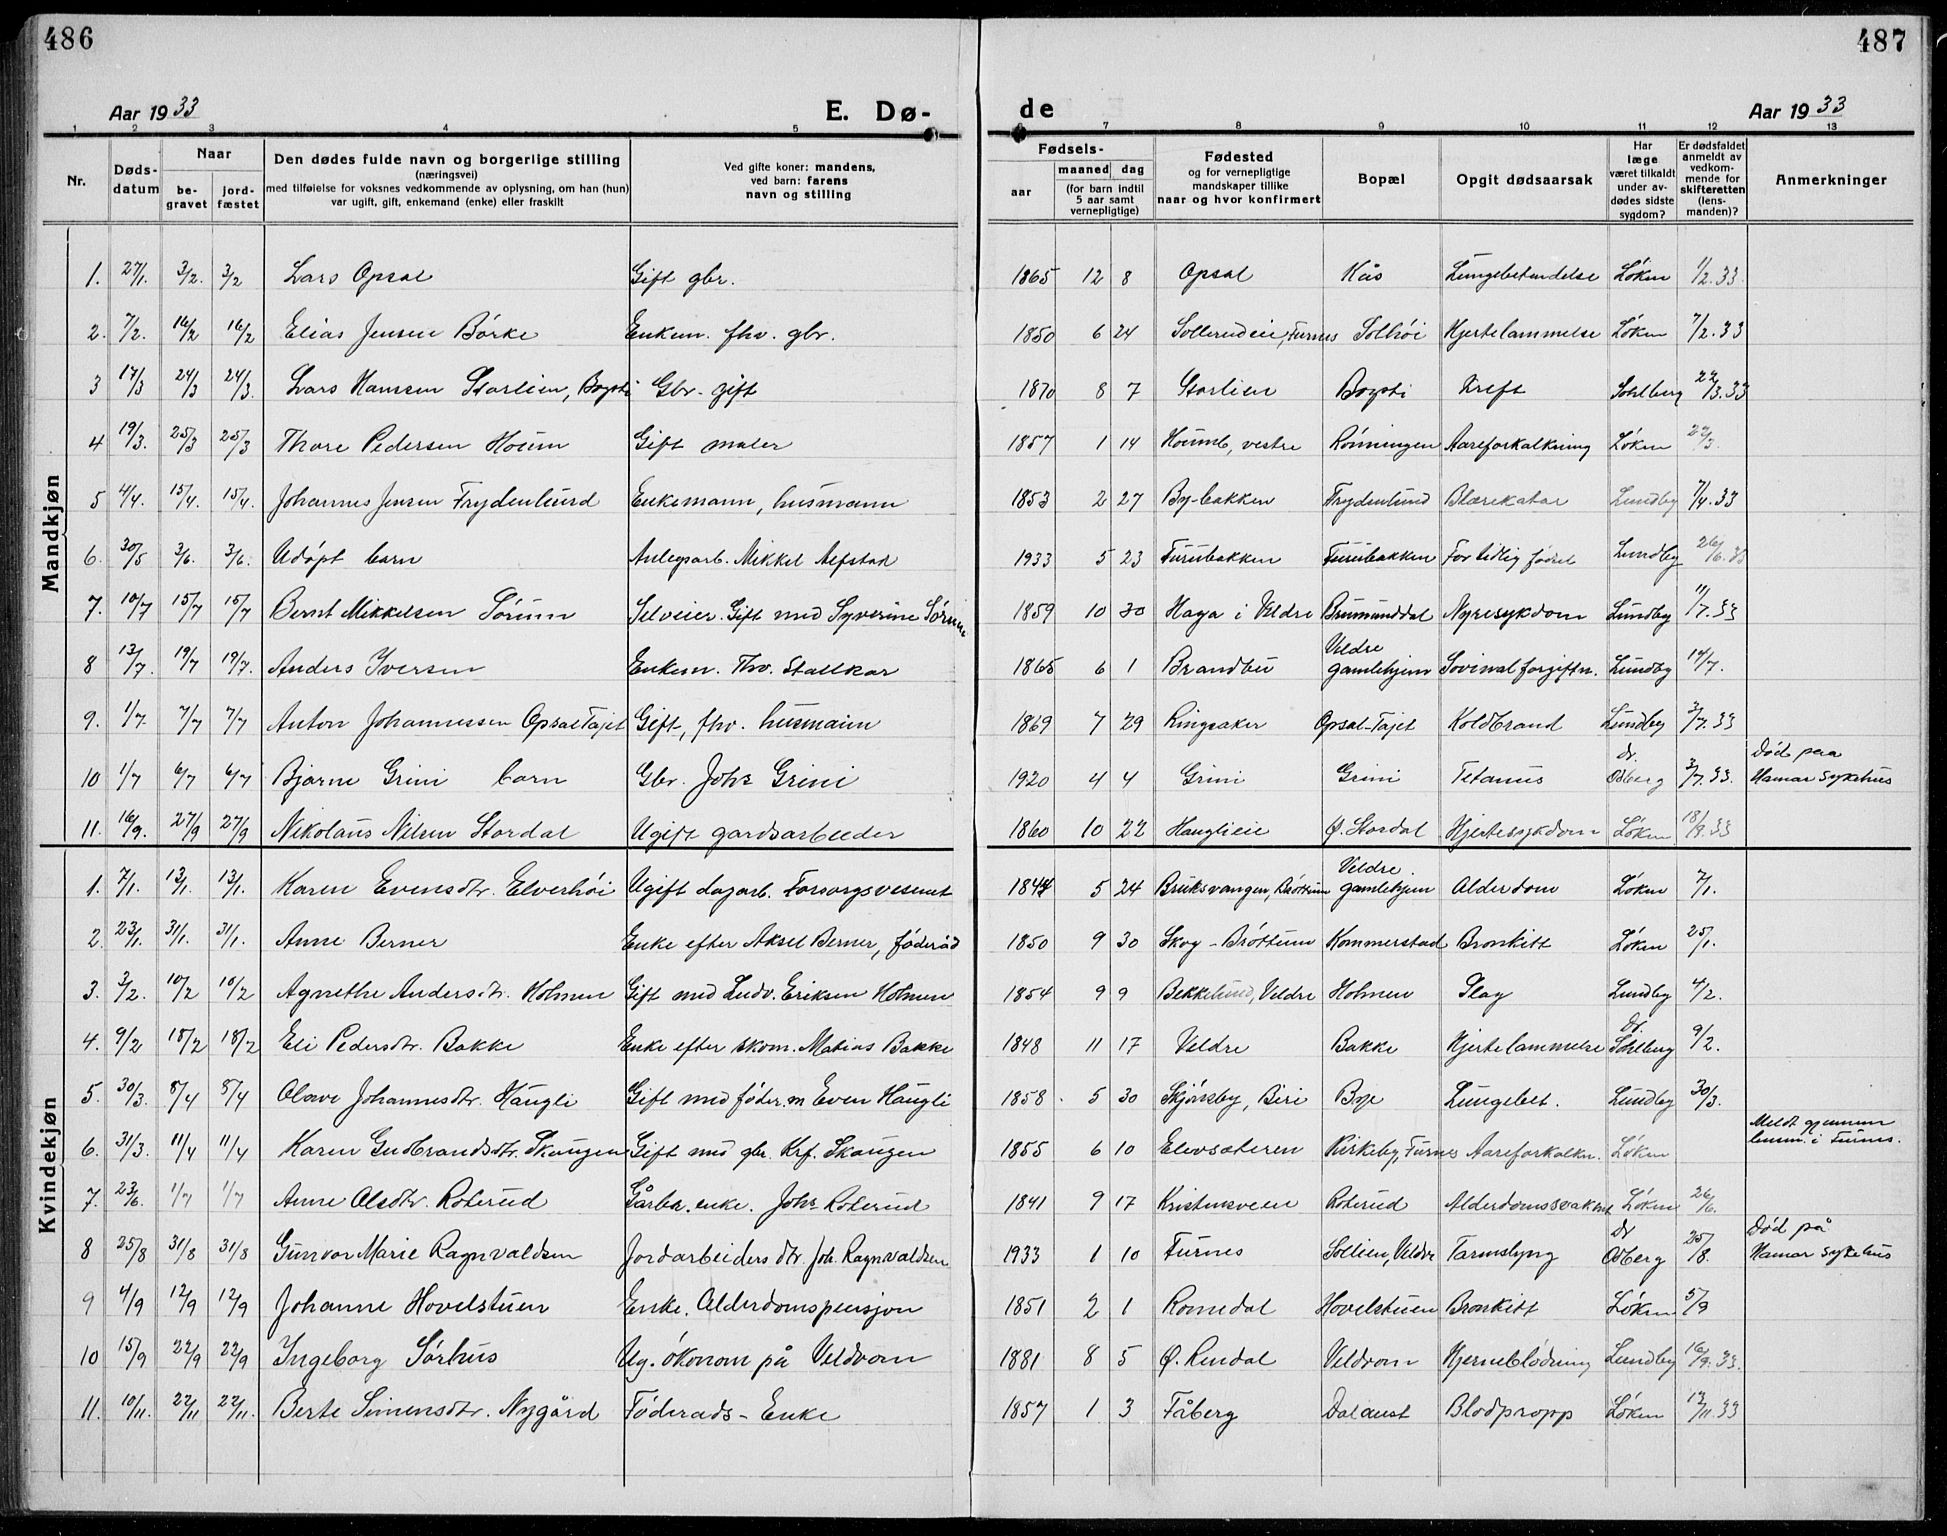 486
487
Aar 1933
E. Dø-
de
Aar 1933
1 2 3 4 5 6 7 8 9 10 11 12 13
Nr.
Døds-
datum
Naar
be-
gravet
jord-
fæstet
Den dødes fulde navn og borgerlige stilling
(næringsvei)
med tilføielse for voksnes vedkommende av oplysning, om han (hun)
var ugift, gift, enkemand (enke) eller fraskilt
Ved gifte koner: mandens,
ved barn: farens
navn og stilling
Fødsels-
aar
maaned
dag
(for barn indtil
5 aar samt
vernepligtige)
Fødested
og for vernepligtige
mandskaper tillike
naar og hvor konfirmert
Bopæl
Opgit dødsaarsak
Har
læge
været tilkaldt
under av-
dødes sidste
sygdom?
Er dødsfaldet
anmeldt av
vedkom-
mende for
skifteretten
(lens-
manden)?
Anmerkninger
Mandkjøn
1. 27/1. 3/2. 3/2 Lars Opsal Gift gbr. 1865 12 8 Opsal Kås Lungebetendelse Løken 1/2.33.
2. 7/2. 16/2 16/2 Elias Jensen Børke Enkem. fhv. gbr. 1850 6 24 Sollerudeie, Furnes Solhøi Hjertelammelse Løken 7/2.33
3 17/3 24/3 24/3. Lars Hanssen Storlien, Bogsti Gbr. gift 1870 8 7 Storlien Bogsti Kreft Sohlberg 22/3.33
4 19/3. 25/3 25/3 Thore Pedersen Houm Gift maler 1857 1 14 Houmb, vestre Rønningen Aareforkalkning Løken 22/3.
5 4/4. 15/4. 15/4. Johannes Jensen Frydenlund Enkemann, husmann 1853 2 27 By-bakken Frydenlund Blærekatar Lundby 7/4.33
6. 30/5 3/6. 3/6. Udøpt barn Anlegsarb. Mikkel Alfstad 1933 5 23 Furubakken Furubakken For tidlig født Lundby 26/6.33
7. 10/7 15/7 15/7 Bernt Mikkelsen Sørum Selveier. Gift med Syverine Sørum 1859 10 30 Haga i Veldre Brumunddal Nyresykdom Lundby 11/7.33
8 13/7. 19/7 19/7. Anders Iversen Enkem. Fhv. Stallkar 1865 6 1 Brandbu Veldre gamlehjem Sovinal forgiftn. Lundby 14/7.
9. 1/7. 7/7 7/7 Anton Johannessen Opsal-Tajet Gift, fhv. husmann 1869 7 29 Ringsaker Opsal-Tajet Koldbrand Lundby 3/7.33
10 1/7 6/7 6/7 Bjarne Grini barn Gbr. Johs Grini 1920 4 4 Grini Grini Tetanus Dr. Odberg 3/7.33. Død paa Hamar sykehus
11. 16/9. 27/9 27/9 Nikolaus Nilsen Stordal Ugift gardsarbeider 1860 10 22 Hauglieie Ø. Stordal Hjertesykdom Løken 18/9.33
Kvindekjøn
1. 7/1. 13/1. 13/1. Karen Evensdtr. Elverhöi Ugift dagarb. Forsorgsvesenet 1844 5 24 Bruksvangen, Brøttum Veldre. gamlehjem Alderdom Løken 7/1.
2. 23/1. 31/1. 31/1. Anne Berner Enke efter Aksel Berner, føderåd 1850 9 30 Skog - Brøttum Kommerstad Bronkitt Løken 25/1.
3. 3/2. 10/2 10/2 Agnethe Andersdtr. Holmen Gift med Ludv. Eriksen Holmen 1854 9 9 Bekkelund, Veldre Holmen Slag Lundby 4/2.
4. 9/2 18/2 18/2 Eli Pedersdtr. Bakke Enke efter skom. Matias Bakke 1848 11 17 Veldre Bakke Hjertelammelse Dr. Sohlberg 9/2.
5. 30/3. 8/4 8/4 Olave Johannesdtr. Haugli Gift med føder.m Even Haugli 1858 5 30 Skjønsby, Biri Boje Lungebet. Lundby 30/3.
6. 31/3. 11/4 11/4 Karen Gudbrandsdtr. Skaugen Gift med gbr. Krf. Skaugen 1855 6 10 Elvesæteren Kirkeby, Furnes Aareforkalkn. Løken Meldt gjennem lensm. i Furnes.
7. 23/6. 1/7 1/7 Anne Olsdtr. Roterud Gårbr. enke. Johs Roterud 1841 9 17 Kristensveen Roterud Alderdomssvakhet Løken 26/6.
8 25/8 31/8 31/8 Gunvor Marie Ragnvaldsen Jordarbeiders dtr. Joh. Ragnvaldsen 1933 1 10 Furnes Sollien, Veldre Tarmslyng Dr Odberg 25/8. Død på Hamar sykehus
9 4/9 12/9 12/9 Johanne Hovelstuen Enke. Alderdomspensjon 1851 2 1 Romedal Hovelstuen Bronkitt Løken 5/9
10 15/9 22/9 22/9 Ingeborg Sørhus Ug. økonom på Veldrom 1881 8 5 Ø. Rendal Veldrom Hjerneblødning Lundby 16/9.33.
11. 10/11. 22/11 22/11. Berte Simensdtr. Nygård Føderads-Enke 1857 1 3 Fåberg Dalaust Blodpropp Løken 13/11.33